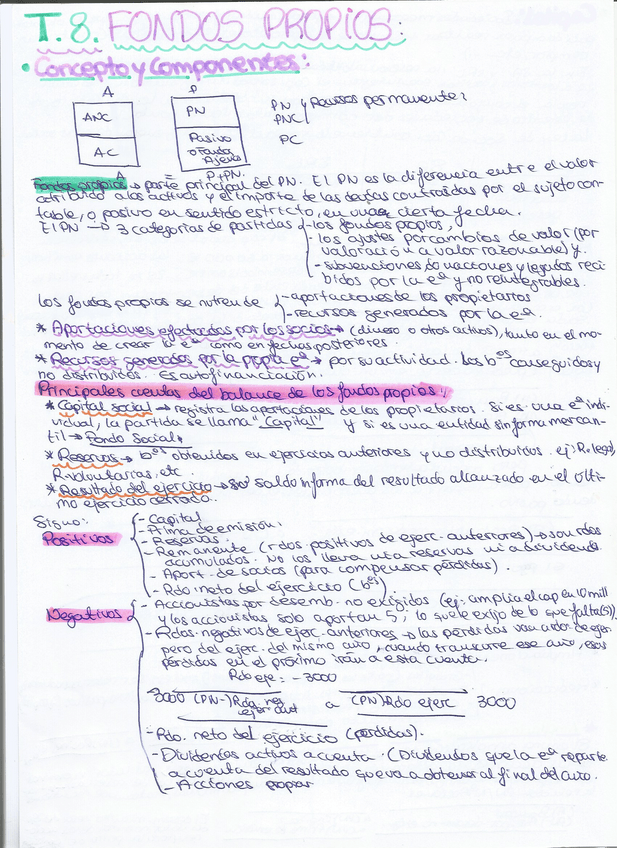 T.8. FONDOS PROPIOS:
• Concepto y componentes:
A P
ANC PN PN y Recursos permanente:
PNC
AC Pasivo PC
o Fondos
Ajenos
A = P+PN.
Fondos propios → parte principal del PN. El PN es la diferencia entre el valor
atribuido a los activos y el importe de las deudas contraídas por el sujeto con-
table, o pasivo en sentido estricto, en una cierta fecha.
El PN → 3 categorías de partidas - los fondos propios,
- los ajustes por cambios de valor (por
valoración a valor razonable) y.
- subvenciones donaciones y legados reci-
bidos por la eª y no reintegrables.
Los fondos propios se nutren de - aportaciones de los propietarios
- recursos generados por la eª.
* Aportaciones efectuadas por los socios → (dinero o otros activos), tanto en el mo-
mento de crear la eª como en fechas posteriores.
* Recursos generados por la propia eª → por su actividad. Los bºs conseguidos y
no distribuidos. Es autofinanciación.
Principales cuentas del balance de los fondos propios:
* Capital social → registra las aportaciones de los propietarios. Si es una eª indi-
vidual, la partida se llama "Capital" y si es una entidad sin forma mercan-
til → Fondo Social.
* Reservas → bºs obtenidos en ejercicios anteriores y no distribuidos. ej: R. legal,
R. voluntarias, etc.
* Resultado del ejercicio → su saldo informa del resultado alcanzado en el últi-
mo ejercicio cerrado.
Signo:
Positivos - Capital
- Prima de emisión.
- Reservas.
- Remanente (rdos. positivos de ejerc. anteriores) → son rdos
acumulados. No los lleva ni a reservas ni a dividendo
- Aport. de socios (para compensar pérdidas).
- Rdo neto del ejercicio (bºs)
Negativos - Accionistas por desemb. no exigidos (ej: amplía el cap en 10 mill
y los accionistas solo aportan 5, lo que le exijo de lo que falta(5)).
- Rdos. negativos de ejerc. anteriores → las pérdidas van a rdo de ejer
pero del ejerc. del mismo año, cuando transcurre ese año, esas
pérdidas en el próximo irán a esta cuenta.
Rdo eje: -3000
3000 (PN-) Rdo. neg ejer ant a (PN) Rdo ejerc 3000
- Rdo. neto del ejercicio (pérdidas).
- Dividendos activos a cuenta. (Dividendos que la eª reparte
a cuenta del resultado que va a obtener al final del año.
- Acciones propias